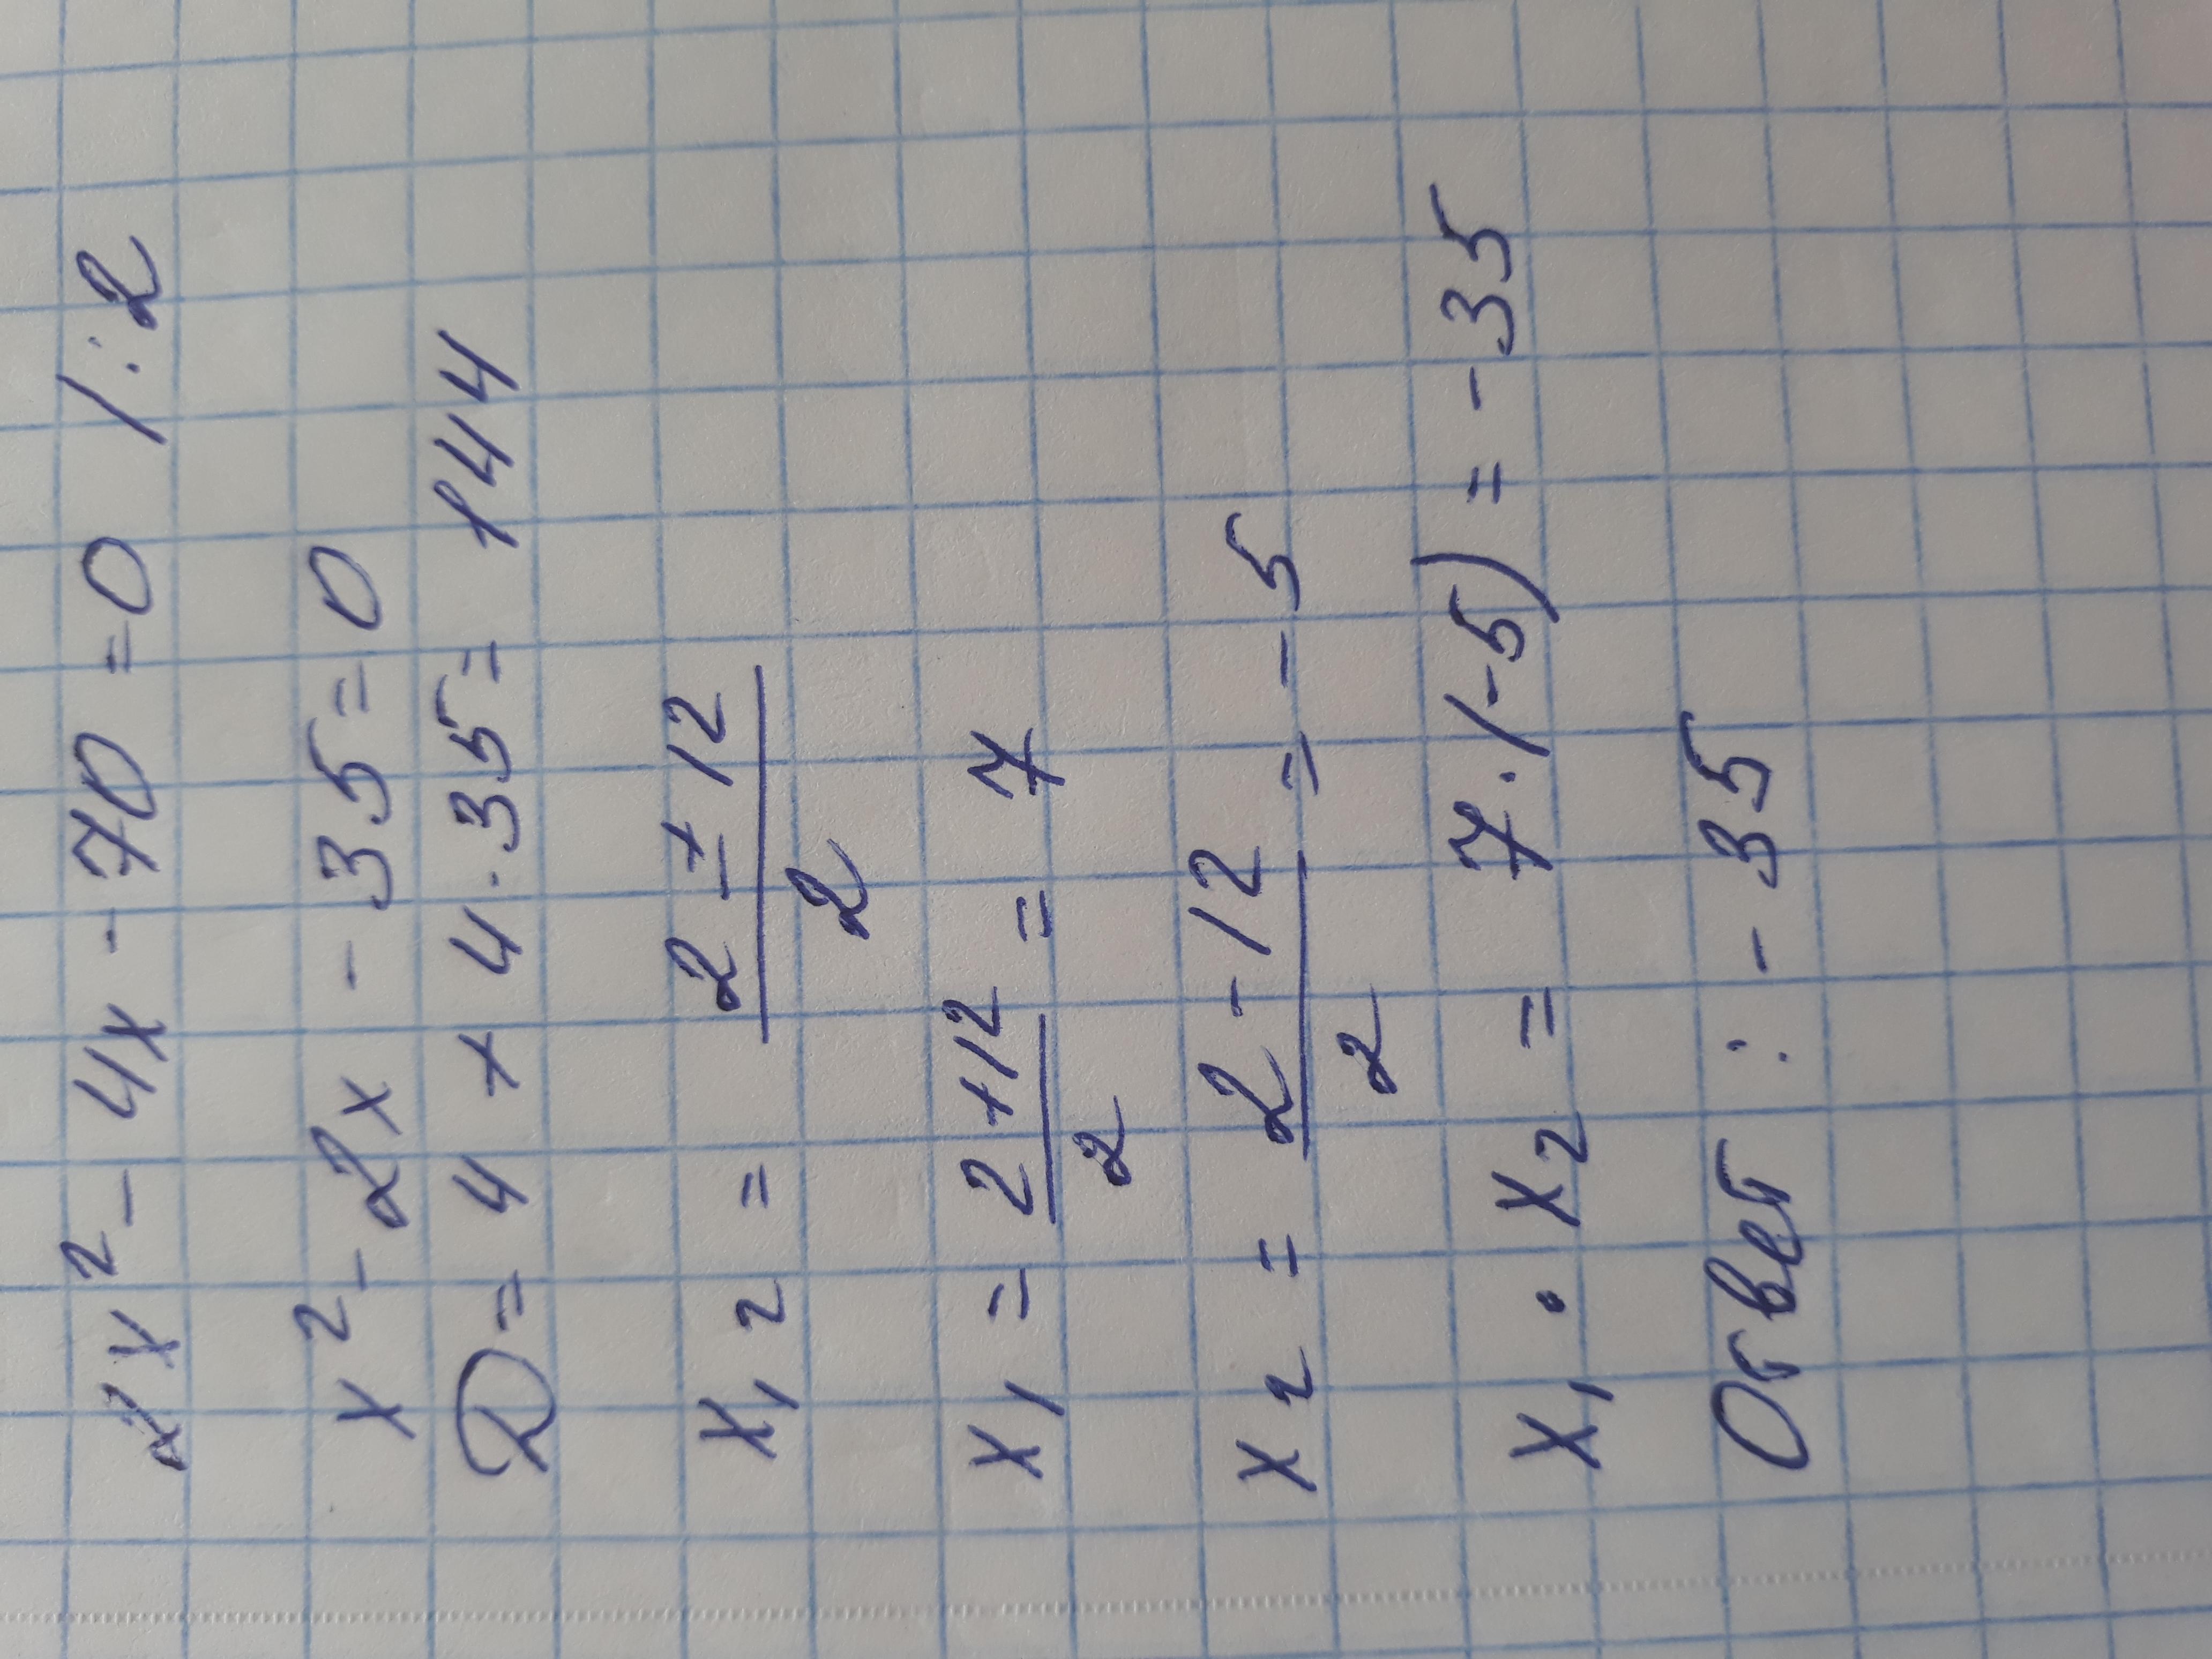 2x² - 4x - 70 = 0 | : 2
x² - 2x - 35 = 0
D = 4 + 4 · 35 = 144
x₁,₂ = (2 ± 12)/2
x₁ = (2 + 12)/2 = 7
x₂ = (2 - 12)/2 = - 5
x₁ · x₂ = 7 · (-5) = - 35
Ответ : - 35